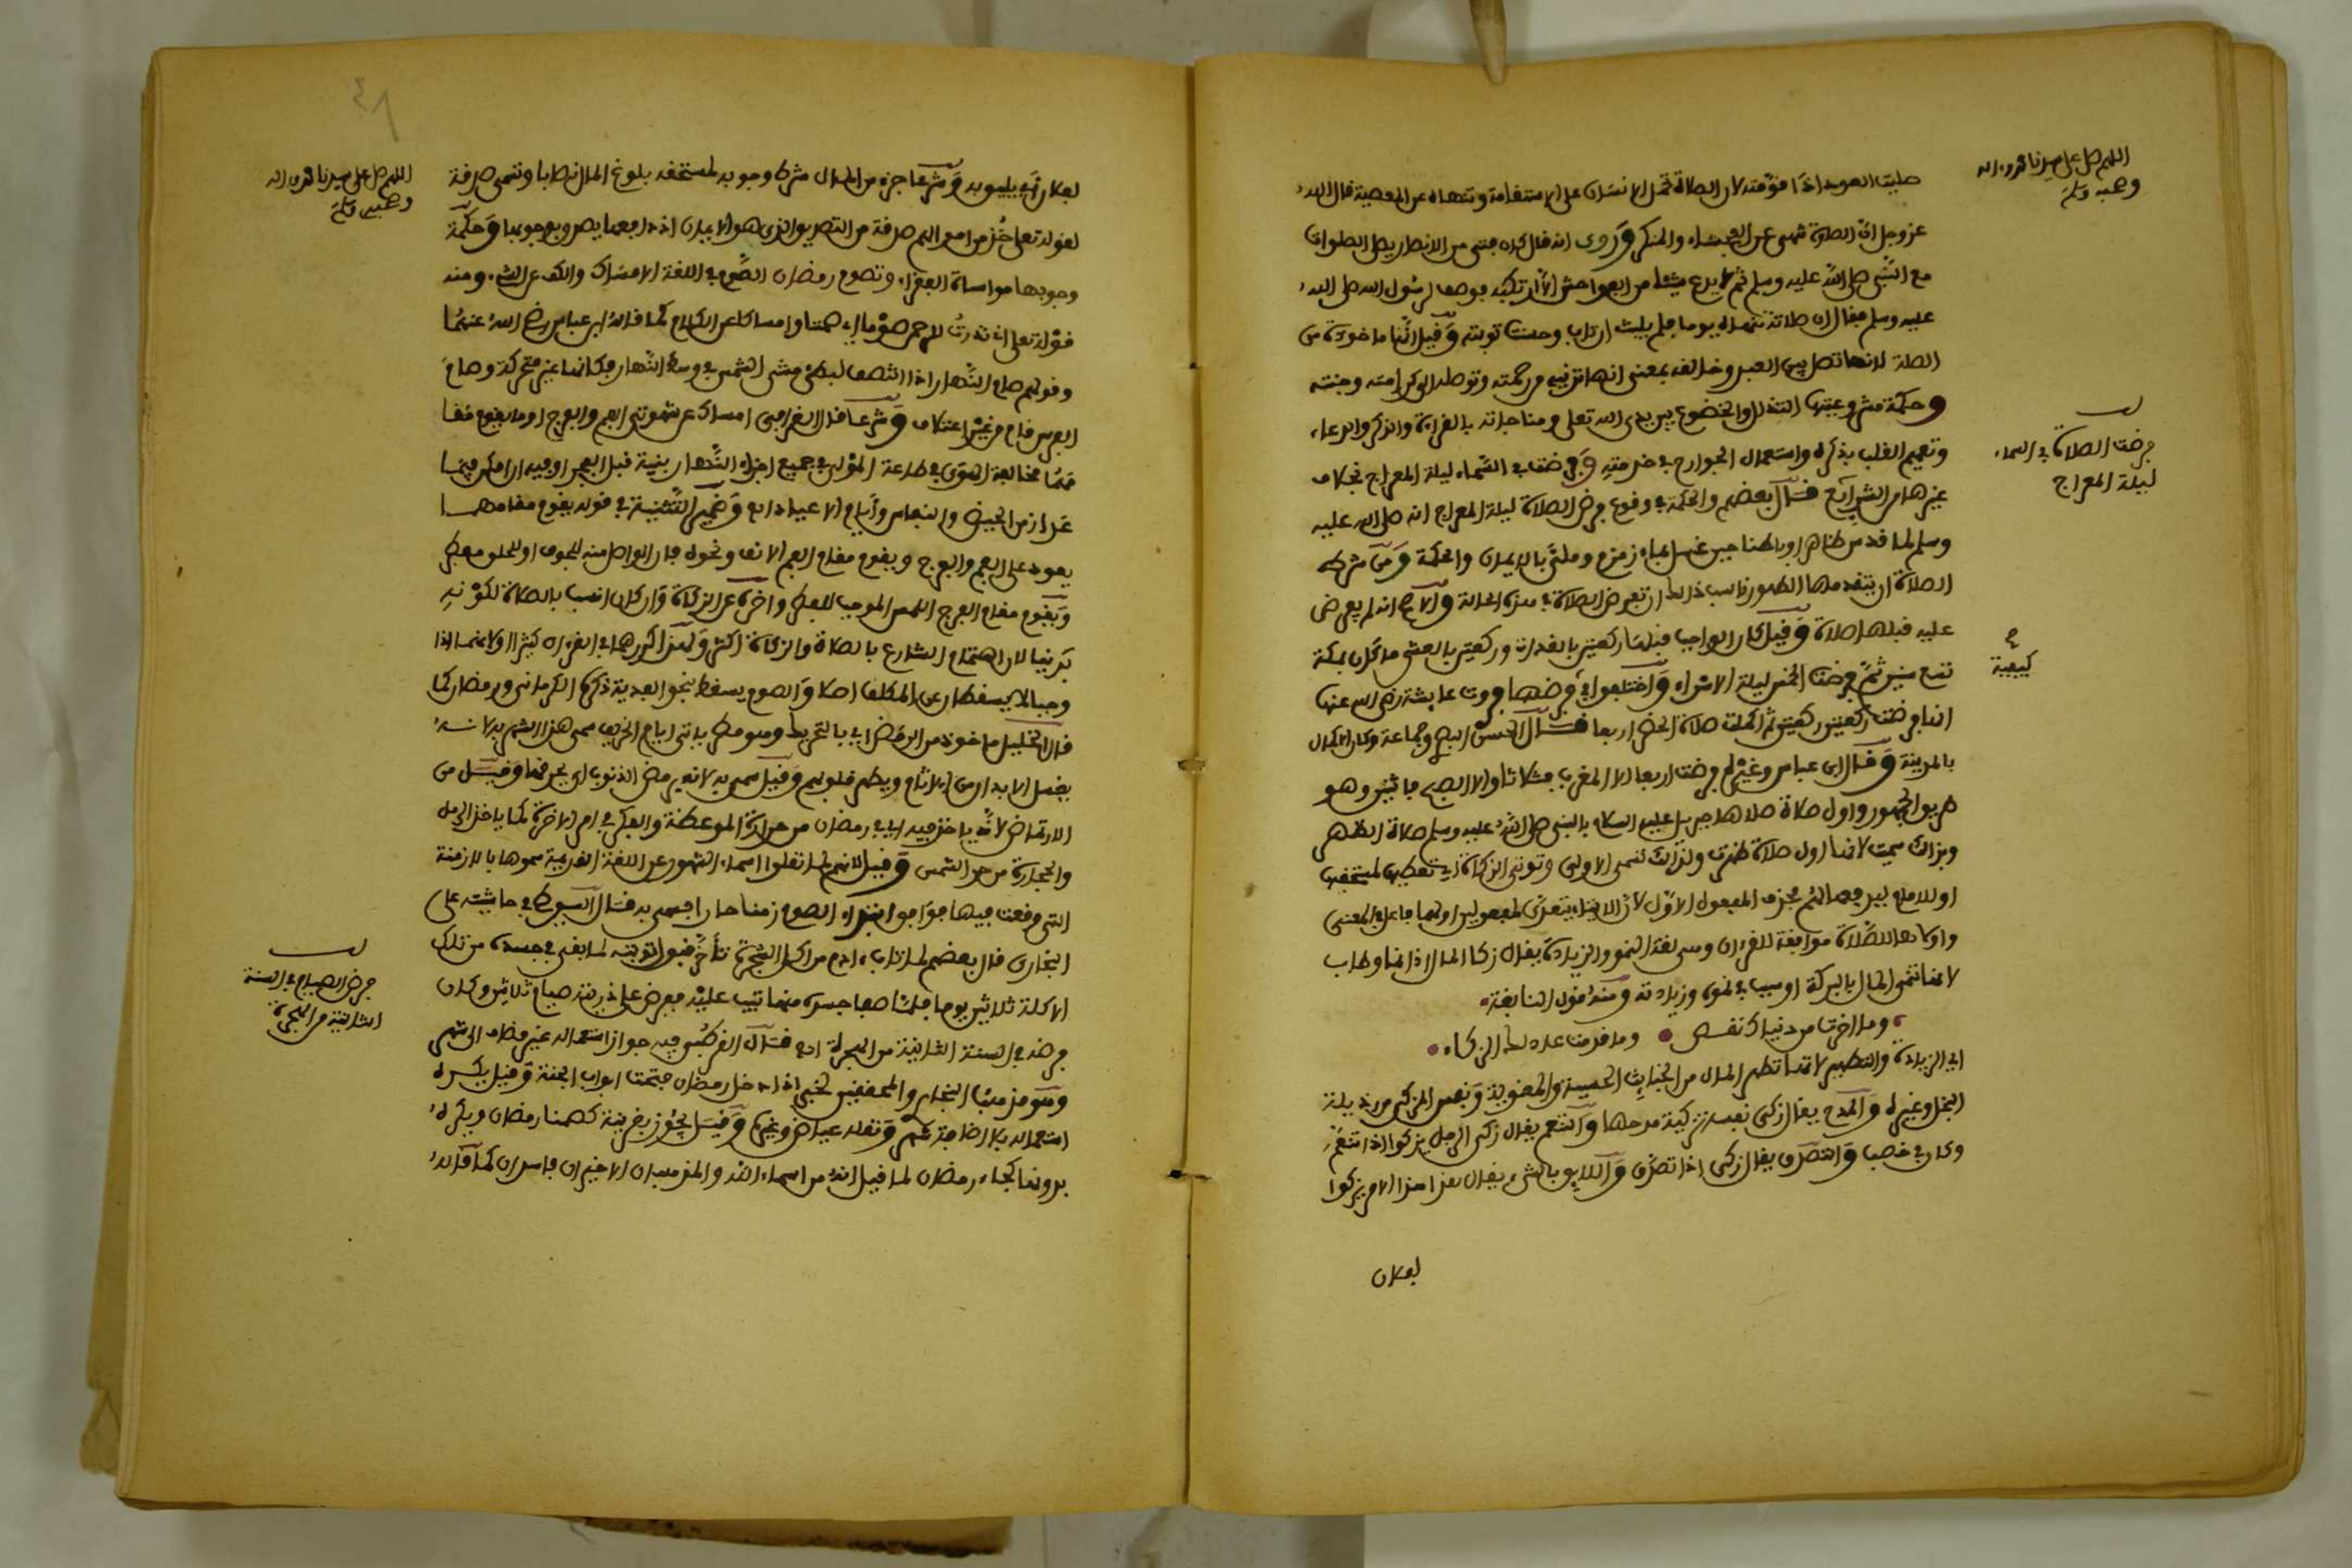 اللهم صل على سيدنا محمد وءاله
وصحبه وسلم
صليت العود اذا قومته لان الصلاة تحمل الانسان على الاستقامة وتنهاه عن المعصية قال الله
عز وجل ان الصلوة تنهى عن الفحشاء والمنكر وروى انه قال كان فتى من الانصار يصلي الصلوات
مع النبي صلى الله عليه وسلم ثم لا يدع شيئا من الفواحش الا ارتكبه فوصف لرسول الله صلى الله
عليه وسلم فقال ان صلاته تنهاه يوما فلم يلبث ان تاب وحسنت توبته وقيل انها ماخوذة من
الصلة لانها تصل بين العبد وخالقه بمعنى انها تدنيه من رحمته وتوصله الى كرامته وجنته
وحكمة مشروعيتها التذلل والخضوع بين يدي الله تعلى ومناجاته بالقراءة والذكر والدعاء
وتعمير القلب بذكره واستعمال الجوارح في خدمته وفرضت في السماء ليلة المعراج بخلاف
غيرها من الشرايع قال بعضهم والحكمة في وقوع فرض الصلاة ليلة المعراج انه صلى الله عليه
وسلم لما قدس ظاهرا وباطنا حين غسل بماء زمزم وملئ بالايمان والحكمة ومن شرط
الصلاة ان يتقدمها الطهور ناسب ذلك ان تفرض الصلاة في هذه الحالة والاصح انه لم يفرض
عليه قبلها صلاة وقيل كان الواجب قبلها ركعتين بالغداة وركعتين بالعشي ما كان بمكة
تسع سنين ثم فرضت الخمس ليلة الاسراء واختلفوا في فرضها فروت عايشة رضي الله عنها
انها فرضت ركعتين ركعتين ثم اكملت صلاة الحضر اربعا قال الحسن البصري وجماعة وكان الاكمال
بالمدينة وقال ابن عباس وغيره فرضت اربعا الا المغرب فثلاثا والا الصبح فاثنين وهو
طريق الجمهور واول صلاة صلاها جبريل عليه السلام بالنبي صلى الله عليه وسلم صلاة الظهر
وبذلك سميت لانها اول صلاة ظهرت ولذلك تسمى الاولى وتوتي الزكاة اي تعطيها لمستحقها
او للامام ليدفعها لهم فحذف المفعول الاول لان الايتاء يتعدى لمفعولين اولهما فاعل في المعنى
لانها تنمي المال بالبركة او سبب في نموه وزيادته ومنه قول النابغة
وما اخرت من دنياك نقص • وما قدمت عاد لك الزكاء •
اي الزيادة والتطهير لانها تطهر المال من الخبايث الحسية والمعنوية ونفس المزكي من رذيلة
البخل وغيره والمدح يقال زكى نفسه تزكية مدحها والتنعم يقال زكى الرجل يزكوا اذا تنعم
وكان في خصب والتصدق يقال زكى اذا تصدق واللايق بالشيء يقال هذا الامر لا يزكوا
بفلان
فرضت الصلاة في السماء
ليلة المعراج
كيفية
٤٨
اللهم صل على سيدنا محمد وءاله
وصحبه وسلم
بفلان اي لا يليق به وشرعا جزء من المال شرط وجوبه لمستحقه بلوغ المال نصابا وتسمى صدقة
لقوله تعلى خذ من اموالهم صدقة من التصديق الذي هو الايمان اذ دافعها يصدق بوجوبها وحكمة
وجوبها مواساة الفقراء وتصوم رمضان الصوم في اللغة الامساك والكف عن الشيء ومنه
قوله تعلى اني نذرت للرحمن صوما اي صمتا وامساكا عن الكلام كما قاله ابن عباس رضي الله عنهما
وقولهم صام النهار اذا انتصف لبطئ مشي الشمس في وسط النهار فكانها غير متحركة وصام
الفرس قام من غير اعتلاف وشرعا قال القرافي امساك عن شهوتي الفم والفرج او ما يقوم مقا
مهما مخالفة للهوى في طاعة المولى في جميع اجزاء النهار بنية قبل الفجر او فيه ان امكن فيما
عدا زمن الحيض والنفاس وأيام الاعياد اه وضمير التثنية في قوله يقوم مقامهما
يعود على الفم والفرج ويقوم مقام الفم الانف ونحوه فان الواصل منه للجوف او للحلق مفطر
ويقوم مقام الفرج اللمس الموجب للفطر واخره عن الزكاة وان كان انسب بالصلاة لكونه
بدنيا لان اهتمام الشارع بالصلاة والزكاة اكثر ولهذا كررهما في القرءان كثيرا ولانهما اذا
وجبا لا يسقطان عن المكلف اصلا والصوم يسقط بنحو الفدية ذكره الكرماني ورمضان كما
قال الخليل ماخوذ من الرمض اي بالتحريك وهو مطر ياتي ايام الخريف سمي هذا الشهر به لانه
يغسل الابدان من الاثام ويطهر قلوبهم وقيل سمي به لانه يرمض الذنوب اي يحرقها وقيل من
الارتماض لانه ياخذ فيه اي في رمضان من حرارة الموعظة والفكر في امر الاخرة كما ياخذ الرمل
والحجارة من حر الشمس وقيل لانهم لما نقلوا اسماء الشهور عن اللغة القديمة سموها بالازمنة
التي وقعت فيها فوافق ابتداء الصوم زمنا حارا فسمي به قال السيوطي في حاشيته على
البخاري قال بعضهم لما تاب ءادم من اكل الشجرة تأخر قبول توبته لما بقي في جسده من تلك
الاكلة ثلاثين يوما فلما صفا جسده منها تيب عليه ففرض على ذريته صيام ثلاثين وكان
فرضه في السنة الثانية من الهجرة اه قال القرطبي فيه جواز استعماله غير مضاف الى شهر
وهو مذهب البخاري والمحققين لخبر اذا دخل رمضان فتحت ابواب الجنة وقيل يكره
استعماله بلا اضافة شهر ونقله عياض وغيره وقيل يجوز بقرينة كصمنا رمضان ويكره
بدونها كجاء رمضان لما قيل انه من اسماء الله والمذهبان الاخيران فاسدان كما قاله
فرض الصيام في السنة
الثانية من الهجرة